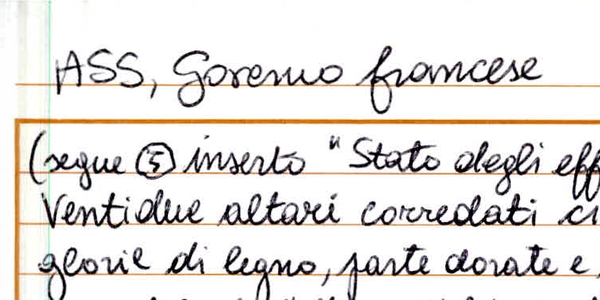 ASS, Governo francese
(segue ⑤ inserto "Stato degli eff
Ventidue altari corredati ci
glorie di legno, parte dorate e